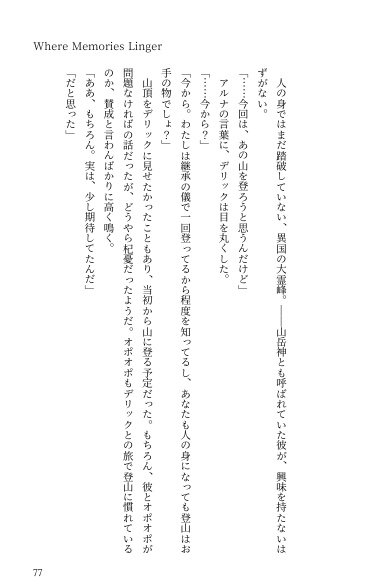 Where Memories Linger
　人の身ではまだ踏破していない、異国の大霊峰。――山岳神とも呼ばれていた彼が、興味を持たないは
ずがない。
「……今回は、あの山を登ろうと思うんだけど」
　アルナの言葉に、デリックは目を丸くした。
「……今から？」
「今から。わたしは継承の儀で一回登ってるから程度を知ってるし、あなたも人の身になっても登山はお
手の物でしょ？」
　山頂をデリックに見せたかったこともあり、当初から山に登る予定だった。もちろん、彼とオポオポが
問題なければの話だったが、どうやら杞憂だったようだ。オポオポもデリックとの旅で登山に慣れている
のか、賛成と言わんばかりに高く鳴く。
「ああ、もちろん。実は、少し期待してたんだ」
「だと思った」
77